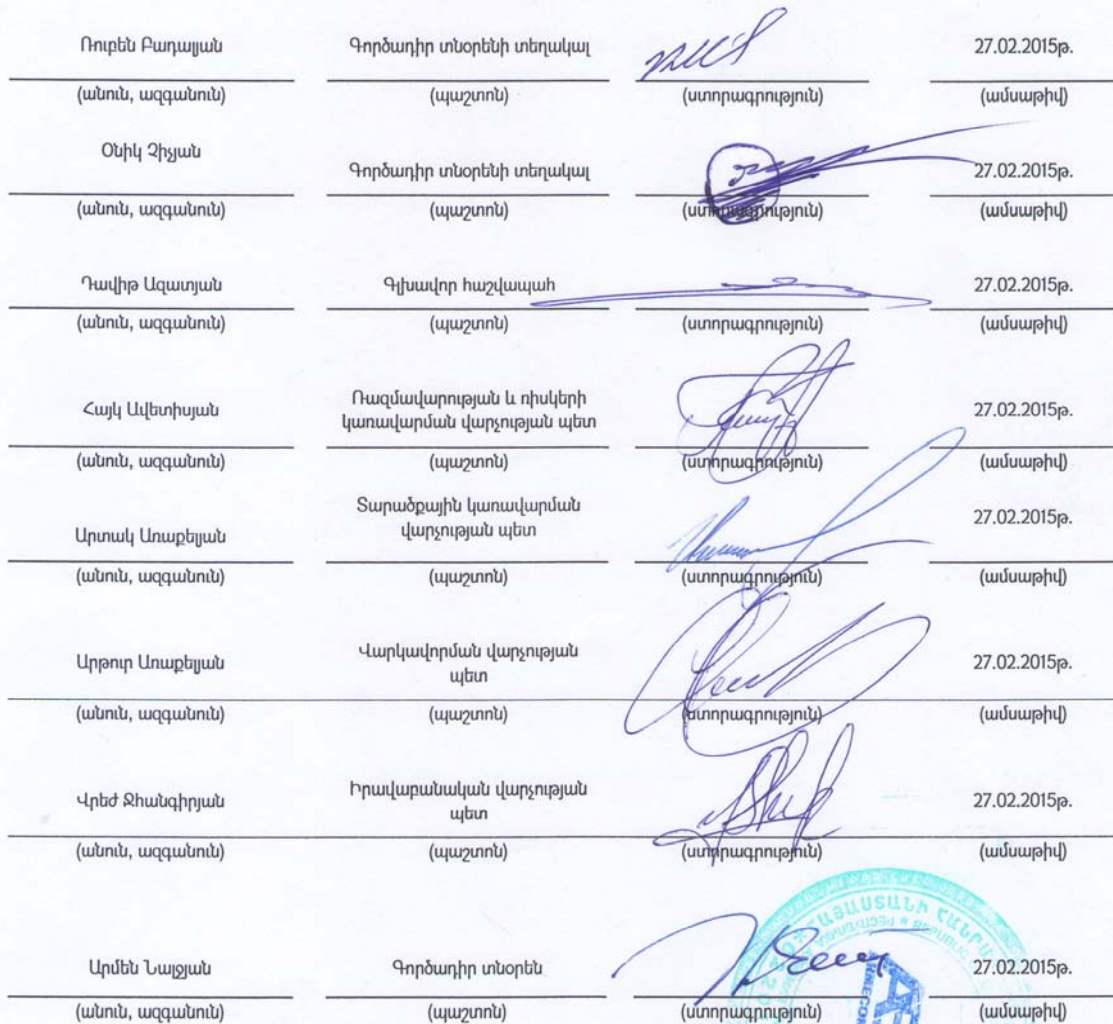 Ռուբեն Բադալյան Գործադիր տնօրենի տեղակալ 27.02.2015թ.
(անուն, ազգանուն) (պաշտոն) (ստորագրություն) (ամսաթիվ)
Օնիկ Չիչյան Գործադիր տնօրենի տեղակալ 27.02.2015թ.
(անուն, ազգանուն) (պաշտոն) (ստորագրություն) (ամսաթիվ)
Դավիթ Ազատյան Գլխավոր հաշվապահ 27.02.2015թ.
(անուն, ազգանուն) (պաշտոն) (ստորագրություն) (ամսաթիվ)
Հայկ Ավետիսյան Ռազմավարության և ռիսկերի
կառավարման վարչության պետ 27.02.2015թ.
(անուն, ազգանուն) (պաշտոն) (ստորագրություն) (ամսաթիվ)
Արտակ Առաքելյան Տարածքային կառավարման
վարչության պետ 27.02.2015թ.
(անուն, ազգանուն) (պաշտոն) (ստորագրություն) (ամսաթիվ)
Արթուր Առաքելյան Վարկավորման վարչության
պետ 27.02.2015թ.
(անուն, ազգանուն) (պաշտոն) (ստորագրություն) (ամսաթիվ)
Վրեժ Ջհանգիրյան Իրավաբանական վարչության
պետ 27.02.2015թ.
(անուն, ազգանուն) (պաշտոն) (ստորագրություն) (ամսաթիվ)
Արմեն Նալջյան Գործադիր տնօրեն 27.02.2015թ.
(անուն, ազգանուն) (պաշտոն) (ստորագրություն) (ամսաթիվ)